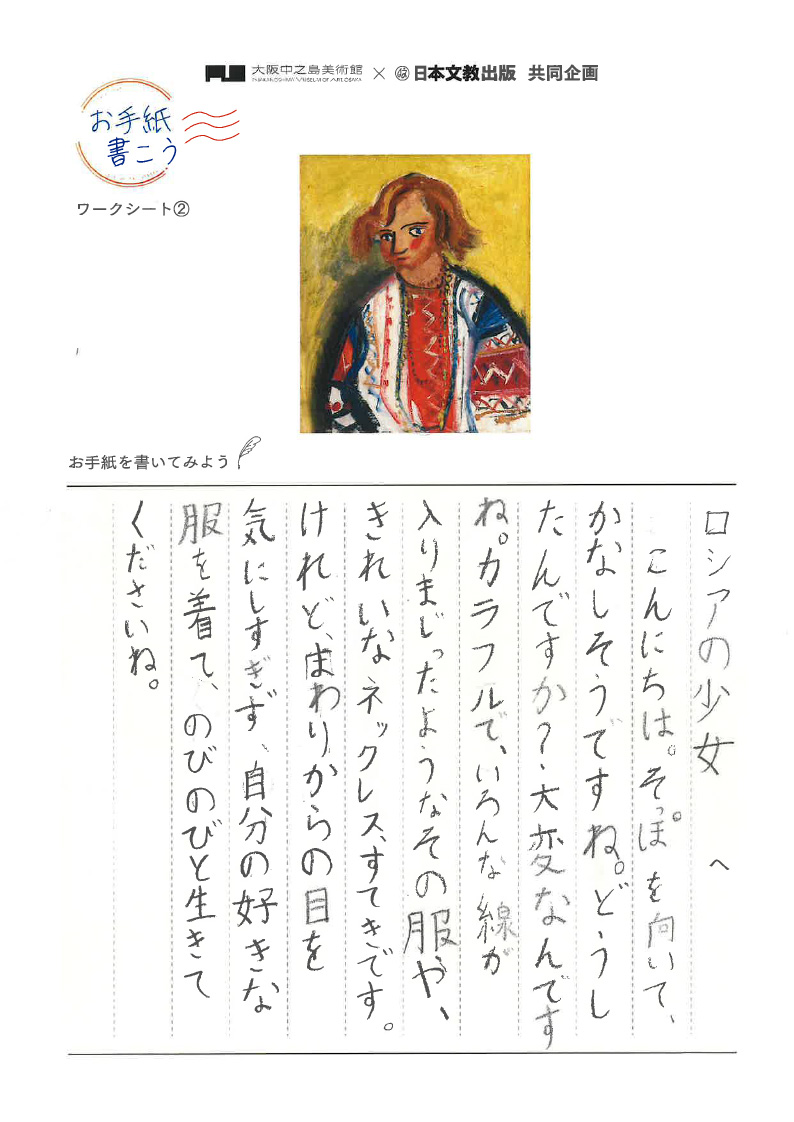 大阪中之島美術館 × 日本文教出版 共同企画
NAKANOSHIMA MUSEUM OF ART, OSAKA
お手紙
書こう
ワークシート②
お手紙を書いてみよう
ロシアの少女 へ
こんにちは。そっぽを向いて、
かなしそうですね。どうし
たんですか?大変なんです
ね。カラフルで、いろんな線が
入りまじったようなその服や、
きれいなネックレス、すてきです。
けれど、まわりからの目を
気にしすぎず、自分の好きな
服を着て、のびのびと生きて
くださいね。